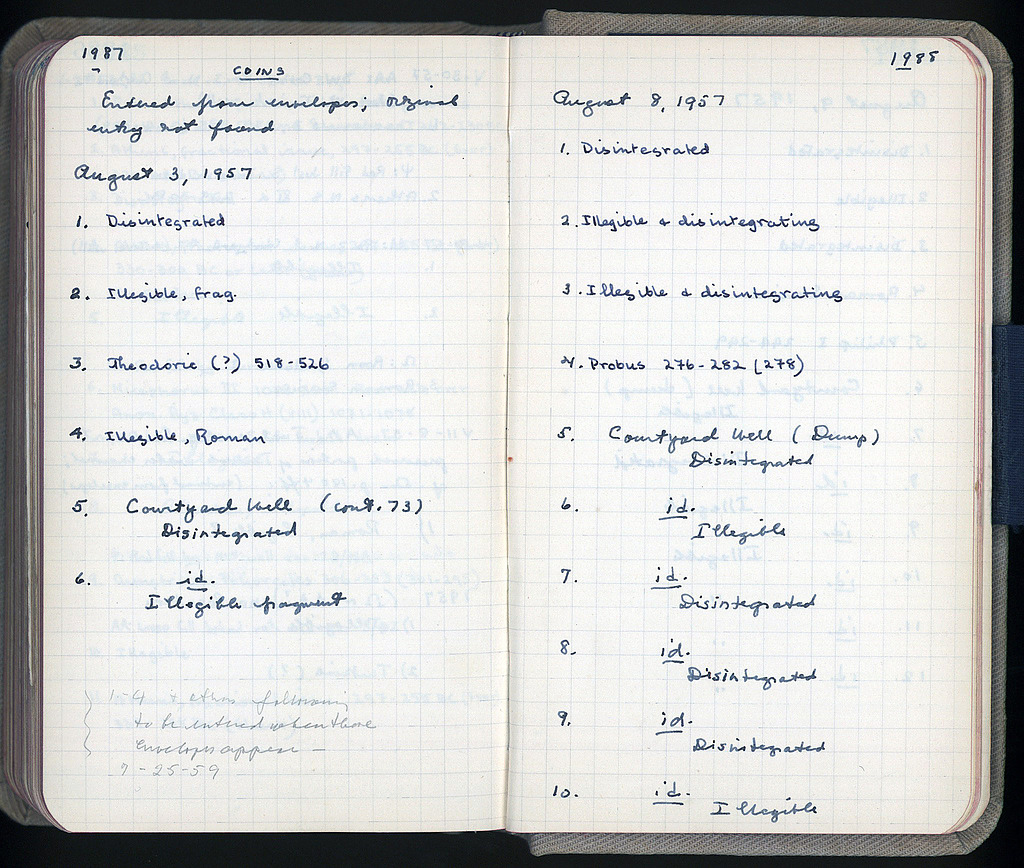 1987
COINS
Entered from envelopes; original
entry not found
August 3, 1957
1. Disintegrated
2. Illegible, frag.
3. Theodoric (?) 518-526
4. Illegible, Roman
5. Courtyard Well (cont. 73)
Disintegrated
6. id.
Illegible fragment
1-4 + others following
to be entered when those
envelopes appear —
7-25-59
1988
August 8, 1957
1. Disintegrated
2. Illegible & disintegrating
3. Illegible & disintegrating
4. Probus 276-282 (278)
5. Courtyard Well (Dump)
Disintegrated
6. id.
Illegible
7. id.
Disintegrated
8. id.
Disintegrated
9. id.
Disintegrated
10. id.
Illegible